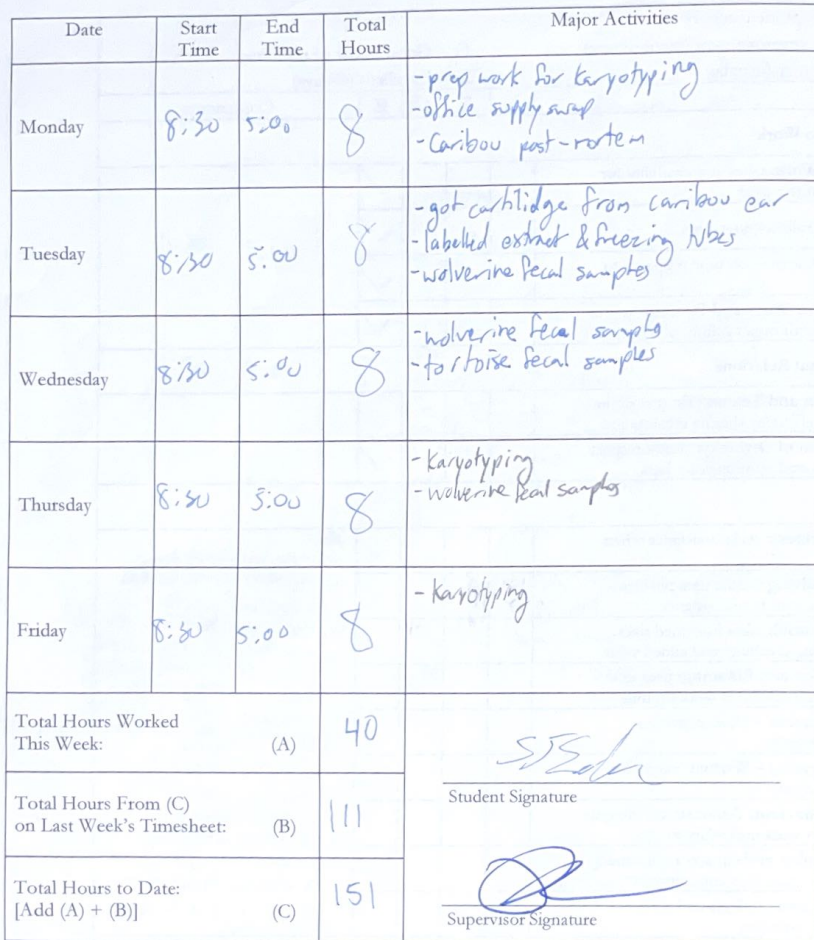 Date Start Time End Time Total Hours Major Activities
Monday 8:30 5:00 8
- prep work for Karyotyping
- office supply swap
- Caribou post-mortem
Tuesday 8:30 5:00 8
- got cartilidge from caribou ear
- labelled extract & freezing tubes
- wolverine fecal samples
Wednesday 8:30 5:00 8
- wolverine fecal samples
- tortoise fecal samples
Thursday 8:30 5:00 8
- Karyotyping
- wolverine fecal samples
Friday 8:30 5:00 8
- Karyotyping
Total Hours Worked
This Week: (A) 40
Student Signature
Total Hours From (C)
on Last Week's Timesheet: (B) 111
Total Hours to Date:
[Add (A) + (B)] (C) 151
Supervisor Signature